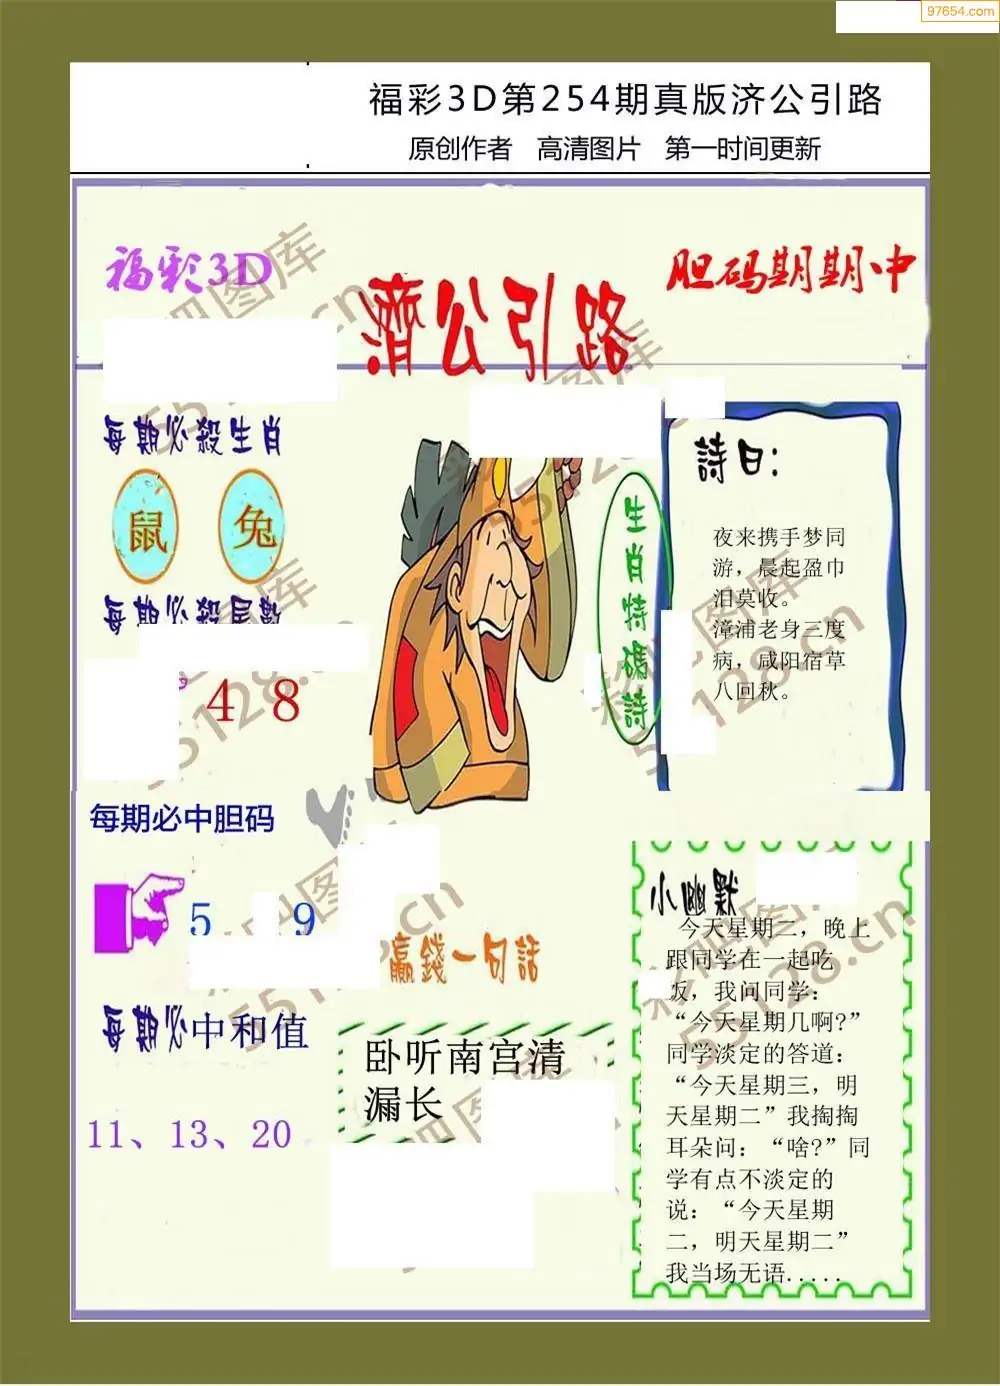 97654.com
福彩3D第254期真版济公引路
原创作者 高清图片 第一时间更新
福彩3D
濟公引路
胆码期期中
每期必殺生肖
鼠 兔
每期必殺尾數
4 8
每期必中胆码
5 9
每期必中和值
11、13、20
生肖特碼詩
詩曰：
夜来携手梦同
游，晨起盈巾
泪莫收。
漳浦老身三度
病，咸阳宿草
八回秋。
赢錢一句話
卧听南宫清
漏长
小幽默
今天星期二，晚上
跟同学在一起吃
饭，我问同学：
“今天星期几啊?”
同学淡定的答道：
“今天星期三，明
天星期二”我掏掏
耳朵问：“啥?”同
学有点不淡定的
说：“今天星期
二，明天星期二”
我当场无语.....
彩吧图库
55128.cn